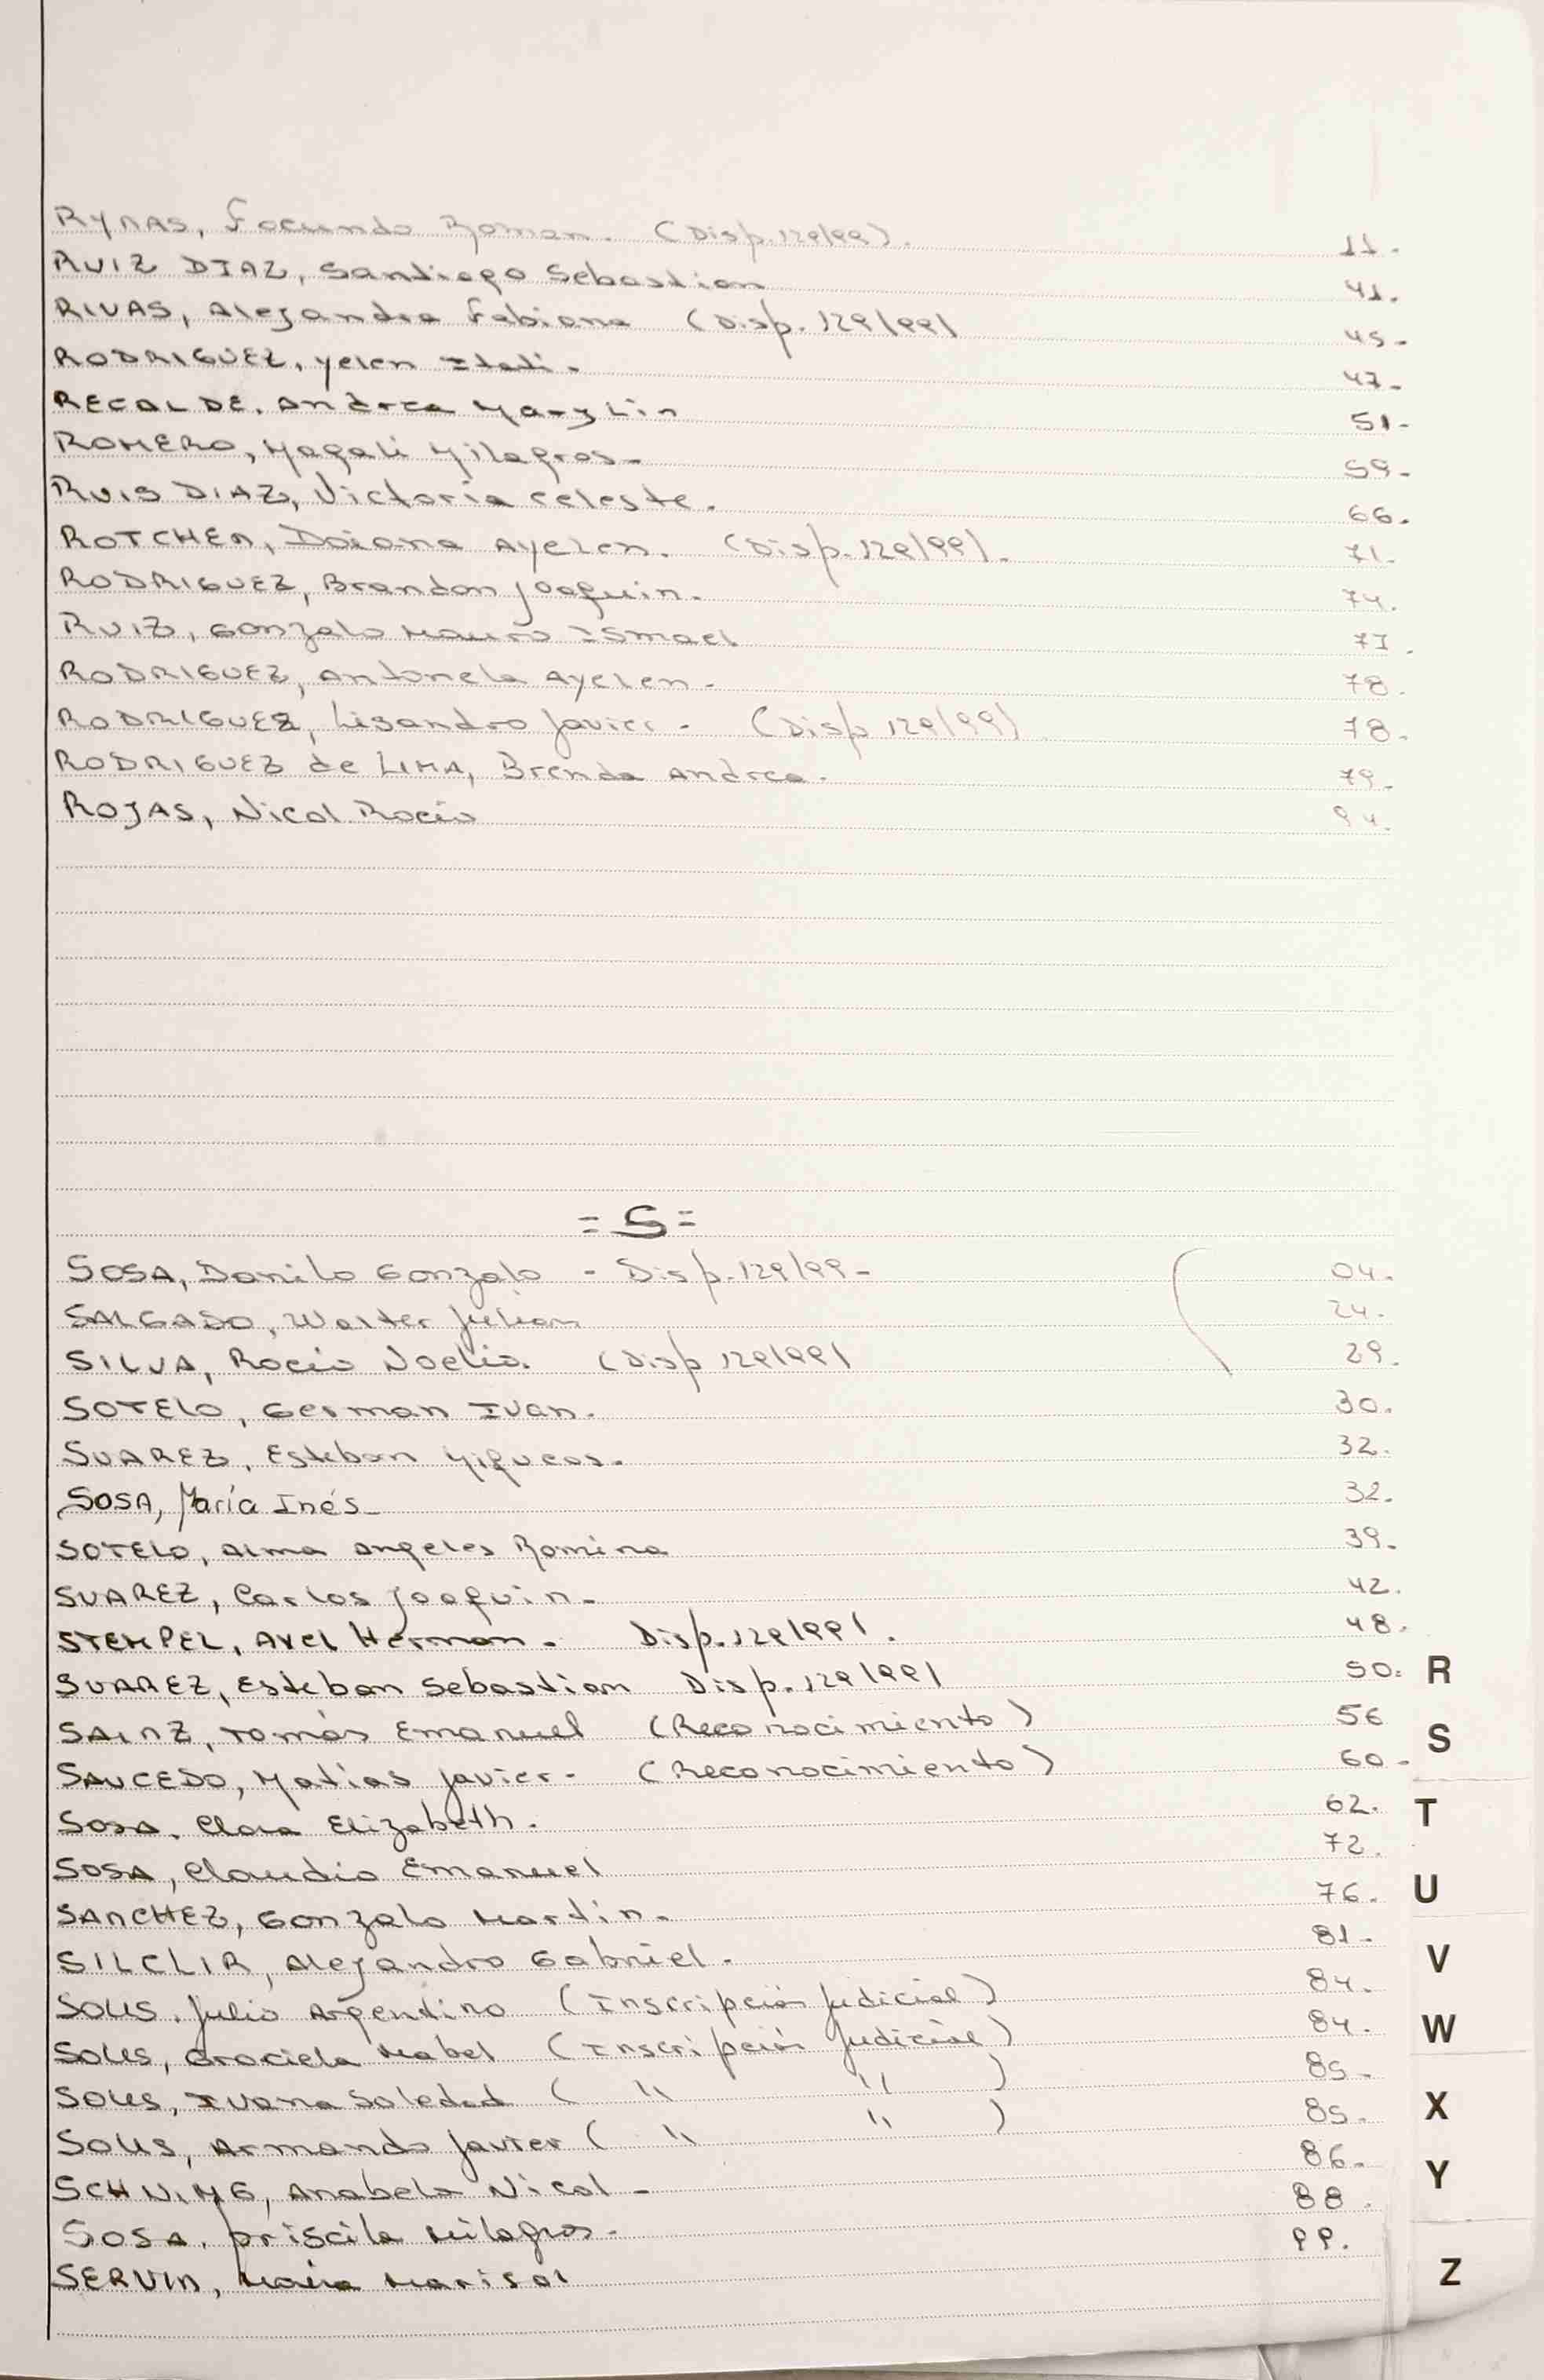 RYNAS, Facundo Roman. (Disp. 129/99). 11.
RUIZ DIAZ, Santiago Sebastian 41.
RIVAS, Alejandra Fabiana (Disp. 129/99) 45-
RODRIGUEZ, Yelen Itati. 47-
RECALDE. Andrea Marylin 51-
ROMERO, Magali Milagros- 59-
RUIS DIAZ, Victoria Celeste. 66.
ROTCHEN, Daiana Ayelen. (Disp. 129/99). 71.
RODRIGUEZ, Brandon Joaquin. 74.
RUIZ, Gonzalo Mauro Ismael 77.
RODRIGUEZ, Antonela Ayelen- 78.
RODRIGUEZ, Lisandro Javier- (Disp 129/99) 78.
RODRIGUEZ de LIMA, Brenda Andrea. 79.
ROJAS, Nicol Rocío 94.
= S =
SOSA, Danilo Gonzalo - Disp. 129/99- 04.
SALGADO, Walter Julian 24.
SILVA, Rocío Noelia. (Disp 129/99) 29.
SOTELO, German Ivan. 30.
SUAREZ, Esteban Miqueas. 32.
SOSA, María Inés- 32.
SOTELO, Alma Angeles Romina 39.
SUAREZ, Carlos Joaquin- 42.
STEMPEL, Axel Herman. Disp. 129/99). 48.
SUAREZ, Esteban Sebastian Disp. 129/99) 50.
SAINZ, Tomás Emanuel (Reconocimiento) 56
SAUCEDO, Matias Javier- (Reconocimiento) 60-
SOSA. Clara Elizabeth. 62.
SOSA, Claudio Emanuel 72.
SANCHEZ, Gonzalo Martin. 76.
SILCLIR, Alejandro Gabriel. 81.
SOLIS. Julio Argentino (Inscripción Judicial) 84.
SOLIS, Graciela Mabel (Inscripción Judicial) 84.
SOLIS, Ivana Soledad ( " " ) 85-
SOLIS, Armando Javier ( " " ) 85.
Anabela Nicol- 86.
SOSA. Priscila Milagros. 88.
SERVIN, María Marisol 99.
R
S
T
U
V
W
X
Y
Z